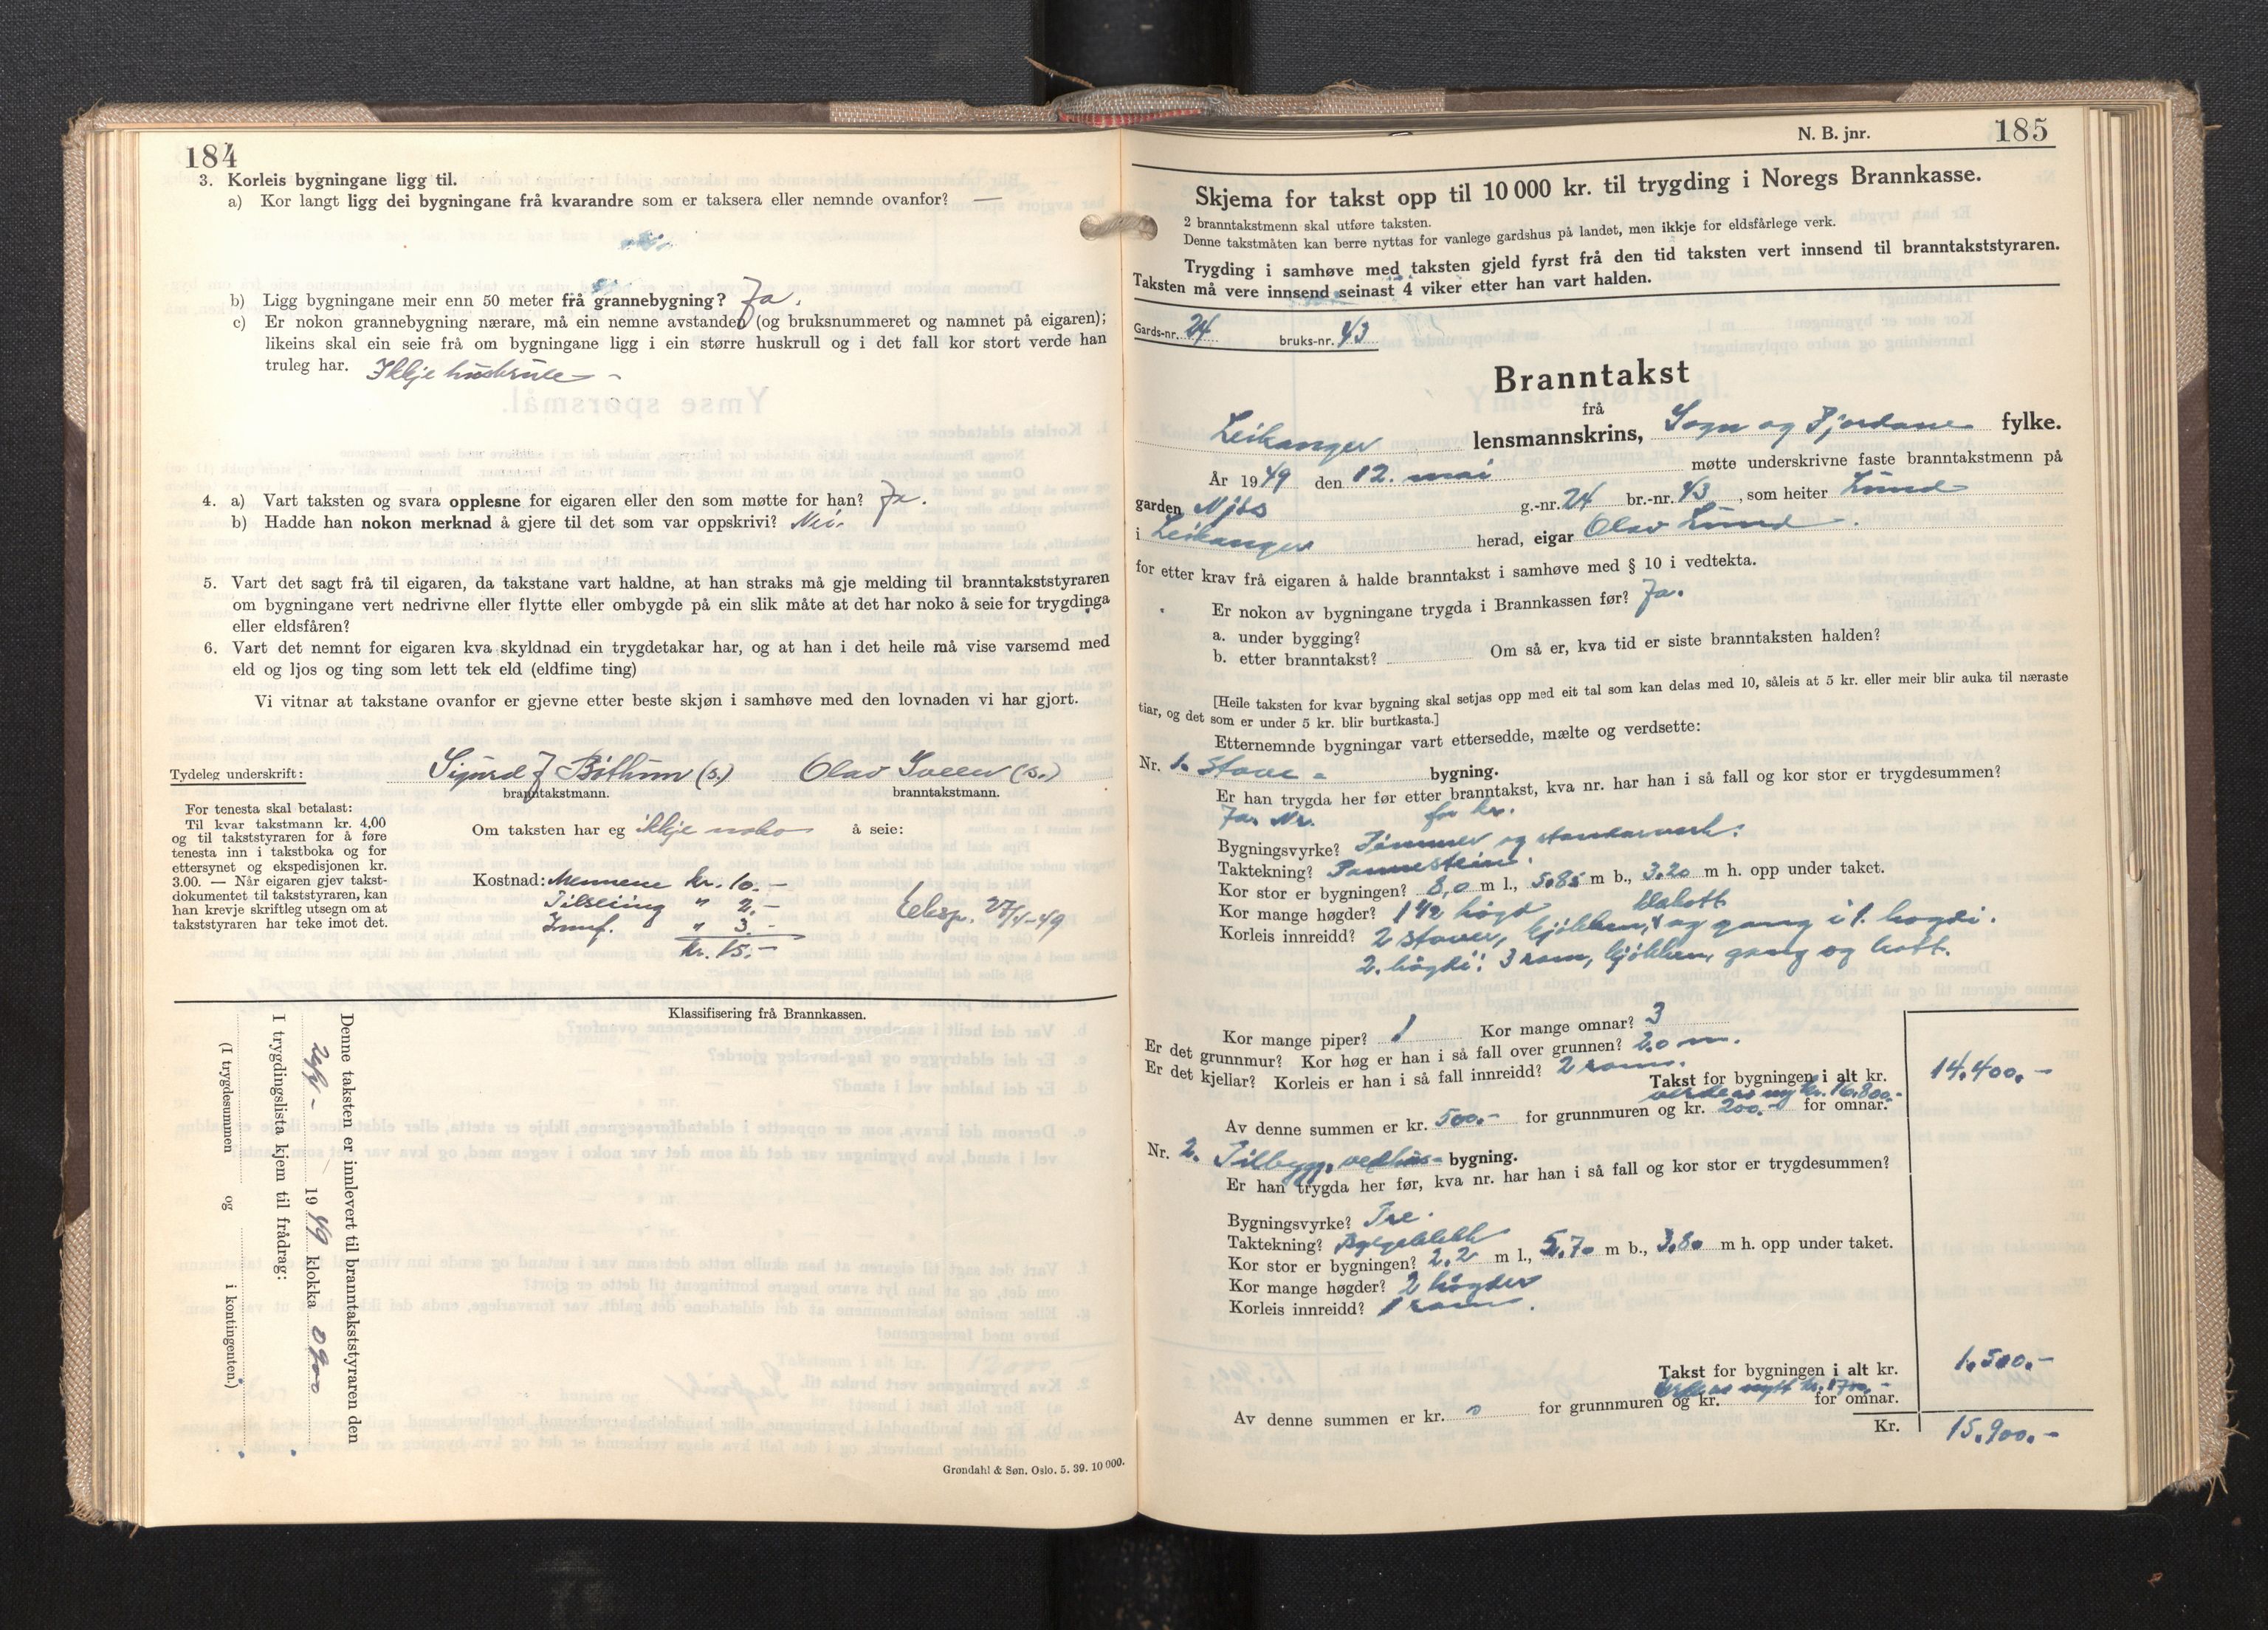 184
3. Korleis bygningane ligg til.
a) Kor langt ligg dei bygningane frå kvarandre som er taksera eller nemnde ovanfor? —
b) Ligg bygningane meir enn 50 meter frå grannebygning? Ja.
c) Er nokon grannebygning nærare, må ein nemne avstanden (og bruksnummeret og namnet på eigaren);
likeins skal ein seie frå om bygningane ligg i ein større huskrull og i det fall kor stort verde han
truleg har. Ikkje huskrull –
4. a) Vart taksten og svara opplesne for eigaren eller den som møtte for han? Ja.
b) Hadde han nokon merknad å gjere til det som var oppskrivi? Nei.
5. Vart det sagt frå til eigaren, da takstane vart haldne, at han straks må gje melding til branntakststyraren
om bygningane vert nedrivne eller flytte eller ombygde på ein slik måte at det har noko å seie for trygdinga
eller eldsfåren?
6. Vart det nemnt for eigaren kva skyldnad ein trygdetakar har, og at han i det heile må vise varsemd med
eld og ljos og ting som lett tek eld (eldfime ting)
Vi vitnar at takstane ovanfor er gjevne etter beste skjøn i samhøve med den lovnaden vi har gjort.
Tydeleg underskrift: Sigurd J Bøthun (s.) Olav Sveen (s.)
branntakstmann. branntakstmann.
For tenesta skal betalast:
Til kvar takstmann kr. 4,00
og til takststyraren for å føre
tenesta inn i takstboka og for
ettersynet og ekspedisjonen kr.
3.00. — Når eigaren gjev takst-
dokumentet til takststyraren, kan
han krevje skriftleg utsegn om at
takststyraren har teke imot det.
Om taksten har eg ikkje noko å seie:
Kostnad: Mennene kr. 10.–
Tilseiing " 2.–
Innf. " 3.–
kr. 15.–
Eksp. 27/5-49
Klassifisering frå Brannkassen.
Denne taksten er innlevert til branntakststyraren den
19 49 klokka 0900
I trygdingslista kjem til frådrag:
(I trygdesummen og i kontingenten.)
Grøndahl & Søn. Oslo. 5. 39. 10 000.
N. B. jnr. 185
Skjema for takst opp til 10 000 kr. til trygding i Noregs Brannkasse.
2 branntakstmenn skal utføre taksten.
Denne takstmåten kan berre nyttas for vanlege gardshus på landet, men ikkje for eldsfårlege verk.
Trygding i samhøve med taksten gjeld fyrst frå den tid taksten vert innsend til branntakststyraren.
Taksten må vere innsend seinast 4 viker etter han vart halden.
Gards-nr. 24 bruks-nr. 43
Branntakst
frå
Leikanger lensmannskrins, Sogn og Fjordane fylke.
År 1949 den 12. mai møtte underskrivne faste branntakstmenn på
garden Njøs g.-nr. 24 br.-nr. 43, som heiter Lund
i Leikanger herad, eigar Olav Lund.
for etter krav frå eigaren å halde branntakst i samhøve med § 10 i vedtekta.
Er nokon av bygningane trygda i Brannkassen før? Ja.
a. under bygging?
b. etter branntakst? Om så er, kva tid er siste branntaksten halden?
[Heile taksten for kvar bygning skal setjas opp med eit tal som kan delas med 10, såleis at 5 kr. eller meir blir auka til næraste
tiar, og det som er under 5 kr. blir burtkasta.]
Etternemnde bygningar vart ettersedde, mælte og verdsette:
Nr. 1. Stove- bygning.
Er han trygda her før etter branntakst, kva nr. har han i så fall og kor stor er trygdesummen?
Ja. Nr. for kr.
Bygningsvyrke? Tømmer og standarverk.
Taktekning? Pannestein.
Kor stor er bygningen? 8,0 m l., 5.85 m b., 3.20 m h. opp under taket.
Kor mange høgder? 1 1/2 høgd
Korleis innreidd? 2 stover, kjøkken, og gang i 1. høgdi.
2. høgdi: 3 rom, kjøkken, gang og kott.
Kor mange piper? 1 Kor mange omnar? 3
Er det grunnmur? Kor høg er han i så fall over grunnen? 2.0 m.
Er det kjellar? Korleis er han i så fall innreidd? 2 rom.
Takst for bygningen i alt kr. 14.400.–
verde as ny kr. 16.800.–
Av denne summen er kr. 500.– for grunnmuren og kr. 200.– for omnar.
Nr. 2. Tilbygg, vedhus- bygning.
Er han trygda her før, kva nr. har han i så fall og kor stor er trygdesummen?
Bygningsvyrke? Tre.
Taktekning? Bølgeblekk
Kor stor er bygningen? 2.2 m l., 5.70 m b., 3.80 m h. opp under taket.
Kor mange høgder? 2 høgder
Korleis innreidd? 1 rom.
Takst for bygningen i alt kr. 1.500.–
nytt kr. 1700.–
Av denne summen er kr. 0 for grunnmuren og kr. for omnar.
Kr. 15.900.–